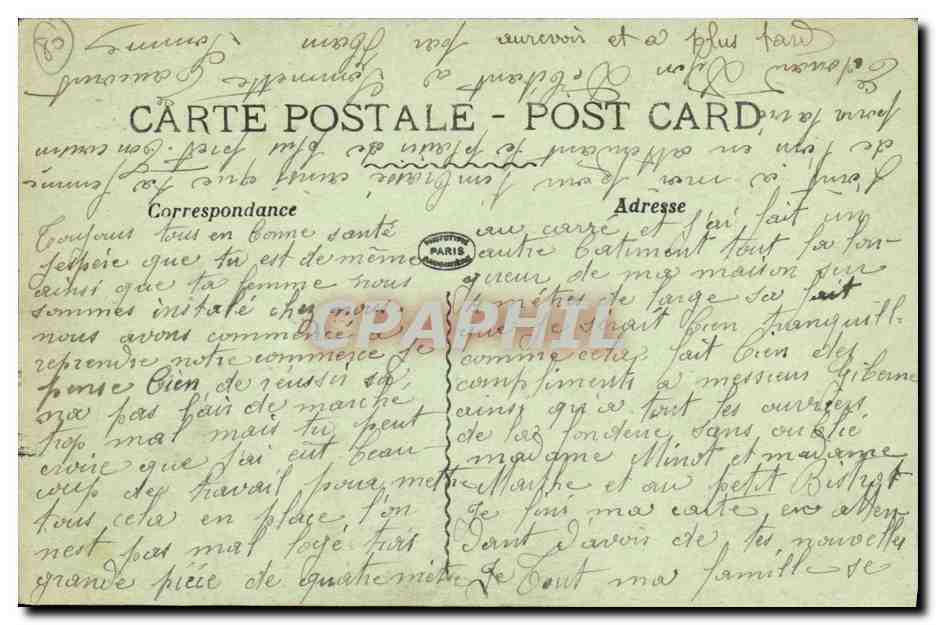 CARTE POSTALE - POST CARD
Correspondance
Toujours tous en bonne santé
j'espère que tu est de même
ainsi que ta femme nous
sommes instalé chez nous
nous avons commencé a
reprendre notre commerce je
pense bien de réussir sa
na pas l'air de marché
trop mal mais tu peut
croire que j'ai eut beau
coup de travail pour mettre
tous cela en place l'on
nest pas mal logé trois
grande pièce de quatre mètre
Adresse
PARIS
au carré et j'ai fait un
autre batiment tout la lon-
gueur de ma maison sur
mètres de large sa fait
que je serait bien tranquill-
comme cela fait bien des
compliments a messieur Giberne
ainsi qu'a tout les ouvriers
de la fonderie sans oublié
madame Minot et madame
Marthe et au petit Bistrot
Je finis ma carte en atten
dant d'avoir de tes nouvelles
Je tout ma famille se
joint a moi pour t'embrassé ainsi que ta femme
de loin en attendant le plaisir de plus pret. ton cousin
pour la vie
Débitant a Sommette Eaucourt
par Ham Somme
aurevoir et a plus tard
80
CPAPHIL